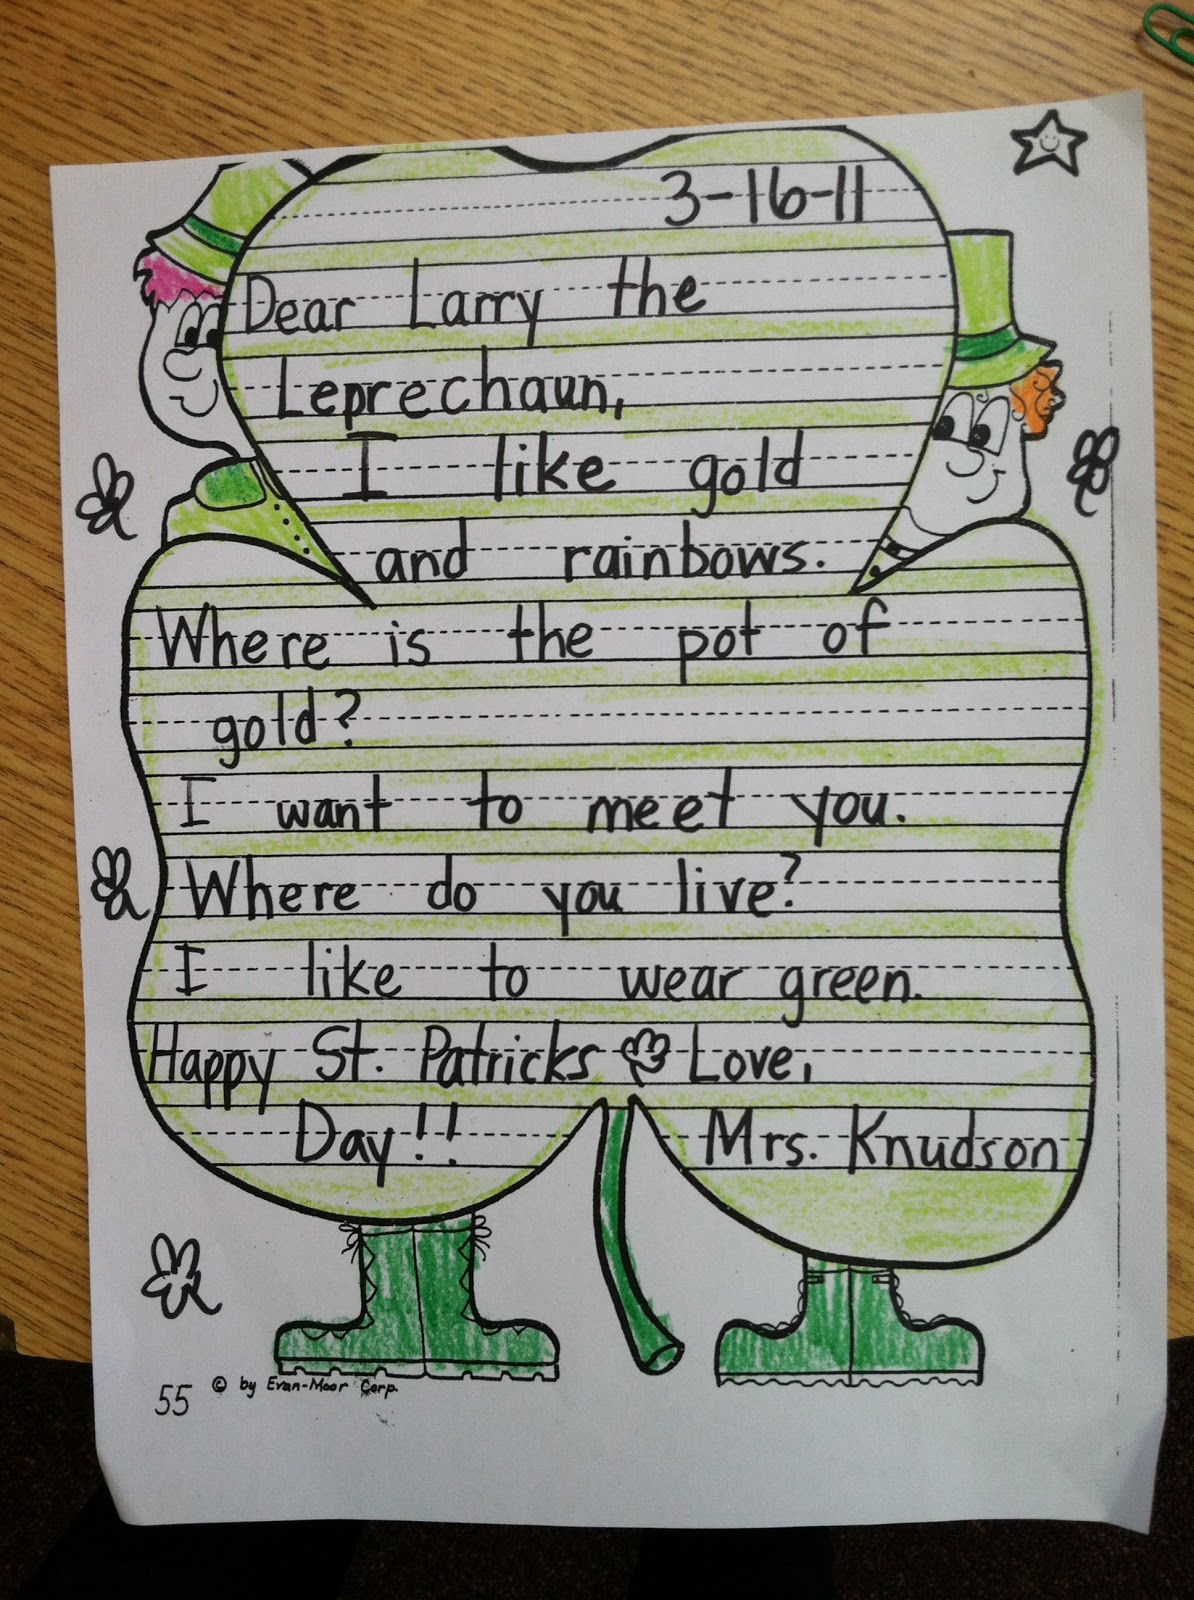 3-16-11
Dear Larry the
Leprechaun,
I like gold
and rainbows.
Where is the pot of
gold?
I want to meet you.
Where do you live?
I like to wear green.
Happy St. Patricks Love,
Day!! Mrs. Knudson
55 © by Evan-Moor Corp.